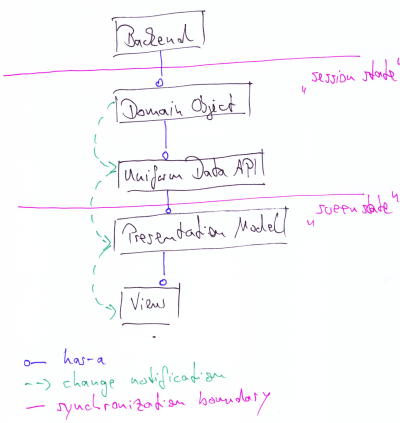 Backend
"session state"
Domain Object
Uniform Data API
"screen state"
Presentation Model
View
has-a
change notification
synchronization boundary